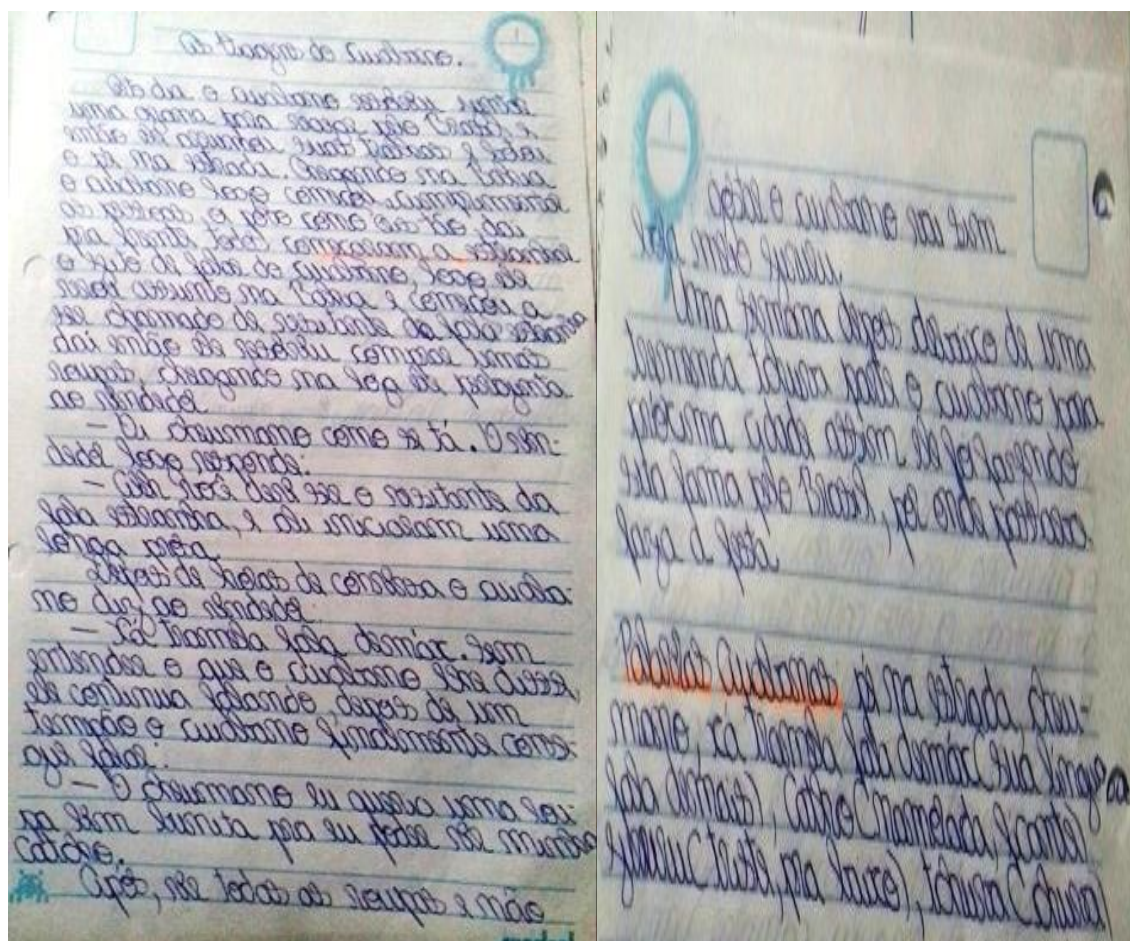 As viagens do cuiabano.
dia o cuiabano resolveu juntar
uma grana para viajar pelo Brasil, e
então ele arrumou suas malas e botou
o pé na estrada. Chegando na Bahia
o cuiabano logo começou cumprimentar
as pessoas, e pôr como era tão, daí
pra frente todos começaram a estranhar
o jeito de falar do cuiabano, logo ele
virou assunto na Bahia e começou a
ser chamado de visitante da fala estranha
daí então ele resolveu comprar umas
roupas, chegando na loja ele pergunta
ao vendedor.
— Ei cheumano como se tá. O ven-
dedor logo responde:
— Você deve ser o visitante da
fala estranha, e ali iniciaram uma
longa
Depois de horas de conversa o cuiaba-
no diz ao vendedor.
— Cá tramela fala dimár. Sem
entender o que o cuiabano lhe disse,
ele continua falando depois de um
tempão o cuiabano finalmente conse-
gue falar:
— O cheumano eu quero uma
bem bunita pra eu poder ver minha
catcho.
Após, ver todas as roupas e não
gostar o cuiabano sai bem
Uma semana depois debaixo de uma
tremenda tchuva parte o cuiabano para
próxima cidade assim ele foi fazendo
sua fama pelo Brasil, por onde passava
fazia a festa.
Palavras cuiabanas: pé na estrada, cheu-
mano, cá tramela fala dimár (sua língua
fala demais), catcho (namorada, ficante)
(triste, pra baixo), tchuva (chuva)